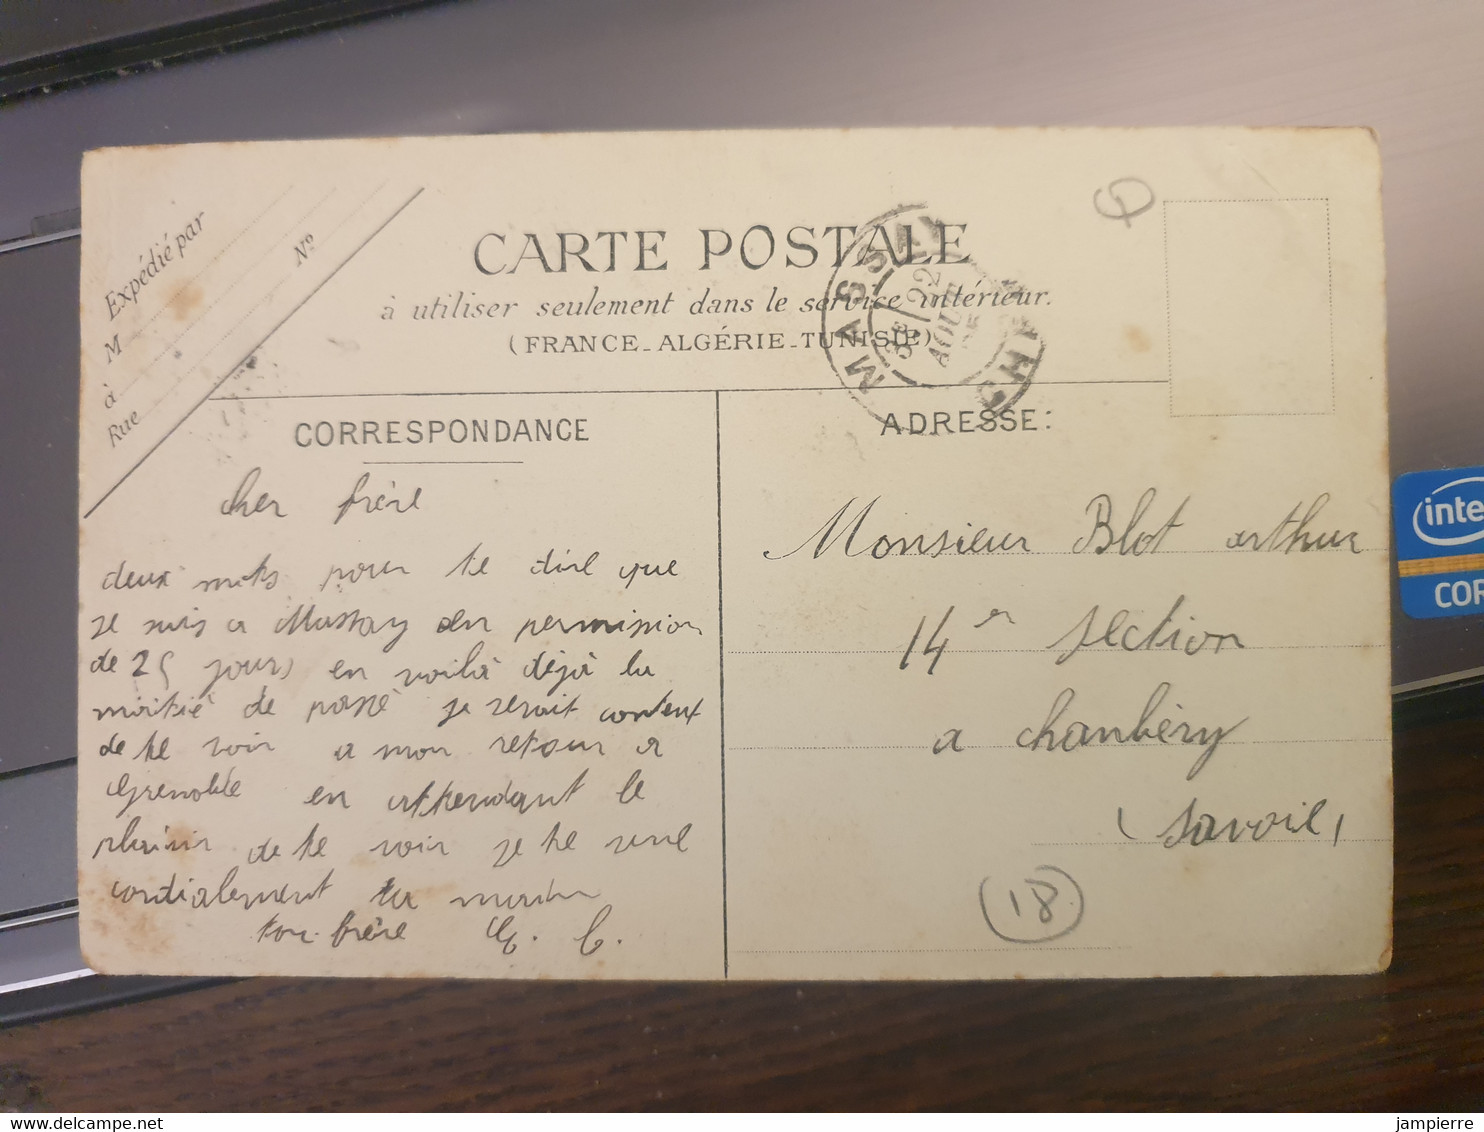 Expédié par
M
à
Rue
Nº
CARTE POSTALE
à utiliser seulement dans le service intérieur.
(FRANCE-ALGÉRIE-TUNISIE)
MASSAY
CHER
3E 22
AOUT
CORRESPONDANCE
ADRESSE:
cher frère
deux mots pour te dire que
je suis a Massay en permission
de 25 jours en voilà déjà la
moitié de passé je serait content
de te voir a mon retour a
Grenoble en attendant le
plaisir de te voir je te serre
cordialement la main
ton frère
Monsieur Blot arthur
14er section
a chanbéry
(savoie)
18
intel
COR
jampierre